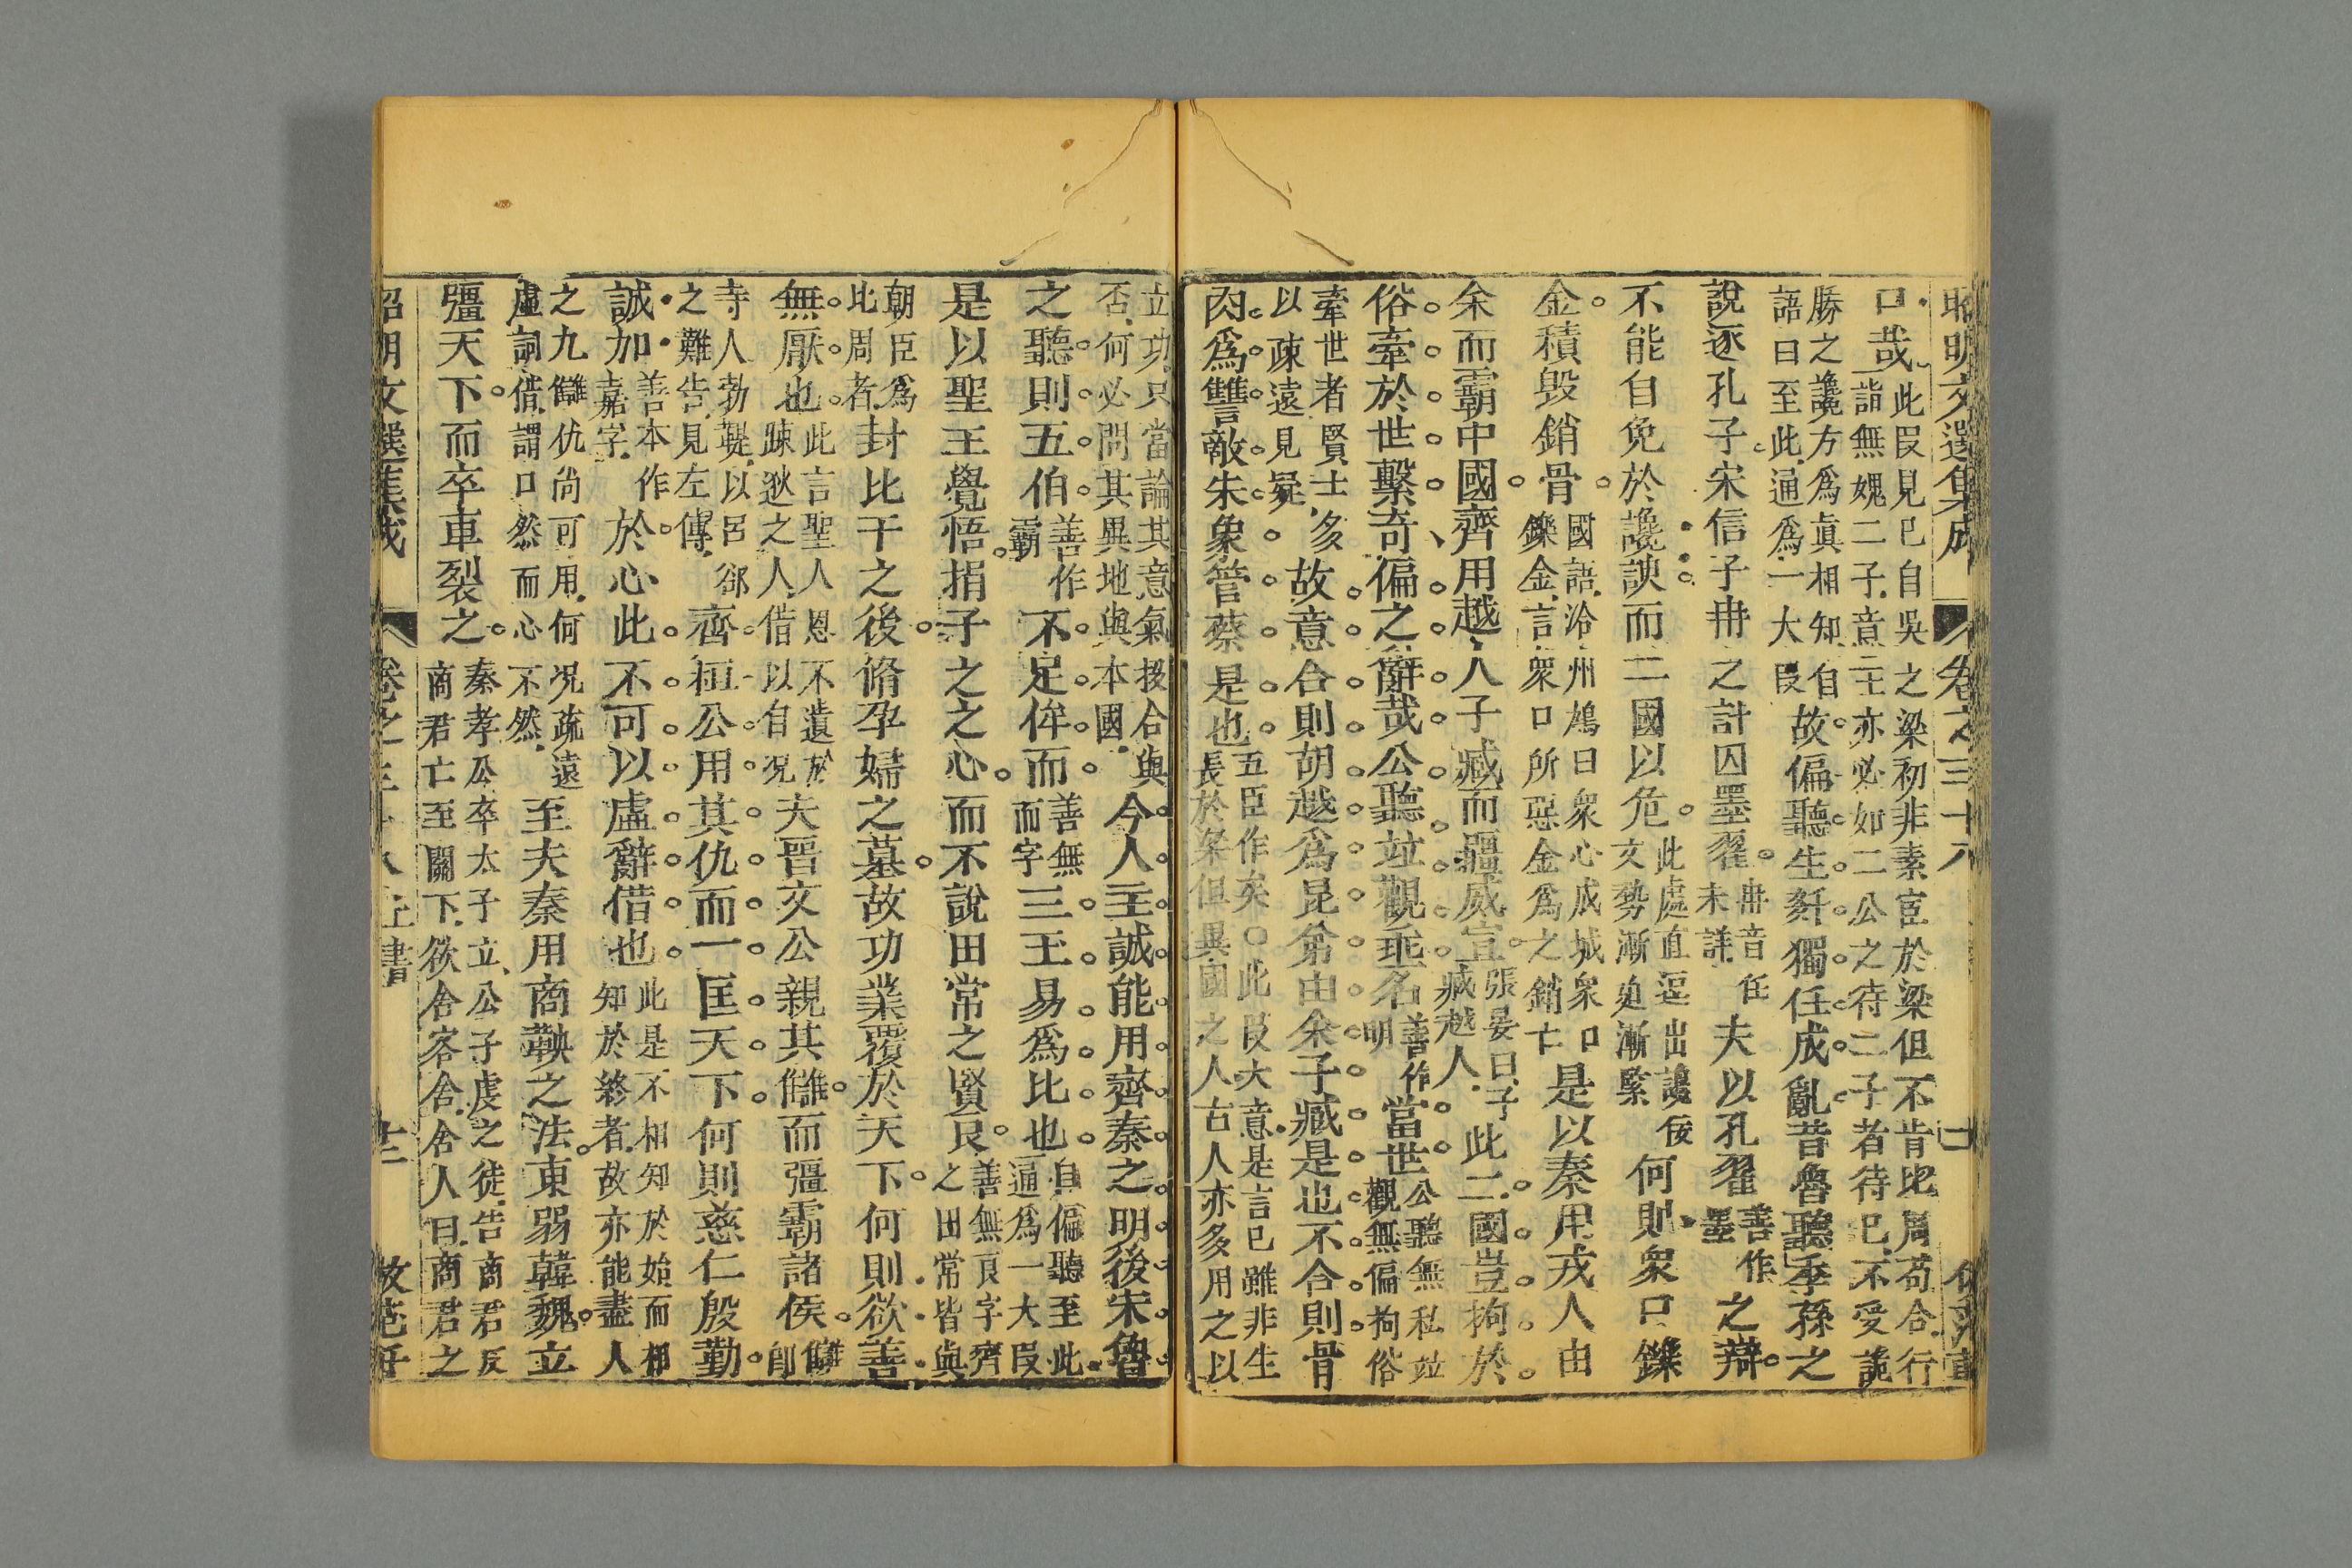 昭明文選集成 卷之三十八
口哉此叚見已自吳之梁初非素宦於梁但不肯比周苟合行
詣無媿二子意二主亦必如二公之待二子者待已不受讒
勝之讒方爲眞相知自
語曰至此通爲一大叚故偏聽生姦獨任成亂昔魯聽季孫之
說逐孔子宋信子冉之計囚墨翟冉音任
未詳夫以孔翟善作
墨之辯
不能自免於讒諛而二國以危此處直逗出讒佞
文勢漸迫漸緊何則衆口鑠
金積毀銷骨國語泠州鳩曰衆心成城衆口
鑠金言衆口所惡金爲之銷亡是以秦用戎人由
余而霸中國齊用越人子臧而彊威宣張晏曰子
臧越人此二國豈拘於
俗牽於世繫奇偏之辭哉公聽竝觀垂名善作
明當世公聽無私竝
觀無偏拘俗
牽世者賢士多
以疎遠見疑故意合則胡越爲昆弟由余子臧是也不合則骨
肉爲讐敵朱象管蔡是也五臣作矣○此叚大意是言已雖非生
長於梁但異國之人古人亦多用之以
立功只當論其意氣投合與
否何必問其異地與本國今人主誠能用齊秦之明後宋魯
之聽則五伯善作
霸不足侔而善無
而字三王易爲比也自偏聽至此
通爲一大叚
是以聖王覺悟捐子之之心而不說田常之賢良善無良字齊
之田常皆與
朝臣爲
比周者封比干之後脩孕婦之墓故功業覆於天下何則欲善
無厭也此言聖人恩不遺於
疎逖之人借以自況夫晉文公親其讎而彊霸諸侯讎
卽
寺人勃鞮以呂郤
之難告見左傳齊桓公用其仇而一匡天下何則慈仁殷勤
誠加善本作
嘉字於心此不可以虛辭借也此是不相知於始而相
知於終者故亦能盡人
之九讎仇尙可用何況疏遠
虛詞借謂口然而心不然至夫秦用商鞅之法東弱韓魏立
彊天下而卒車裂之秦孝公卒太子立公子虔之徒告商君反
商君亡至關下欲舍客舍舍人曰商君之
昭明文選集成 卷之三十八上書 十二